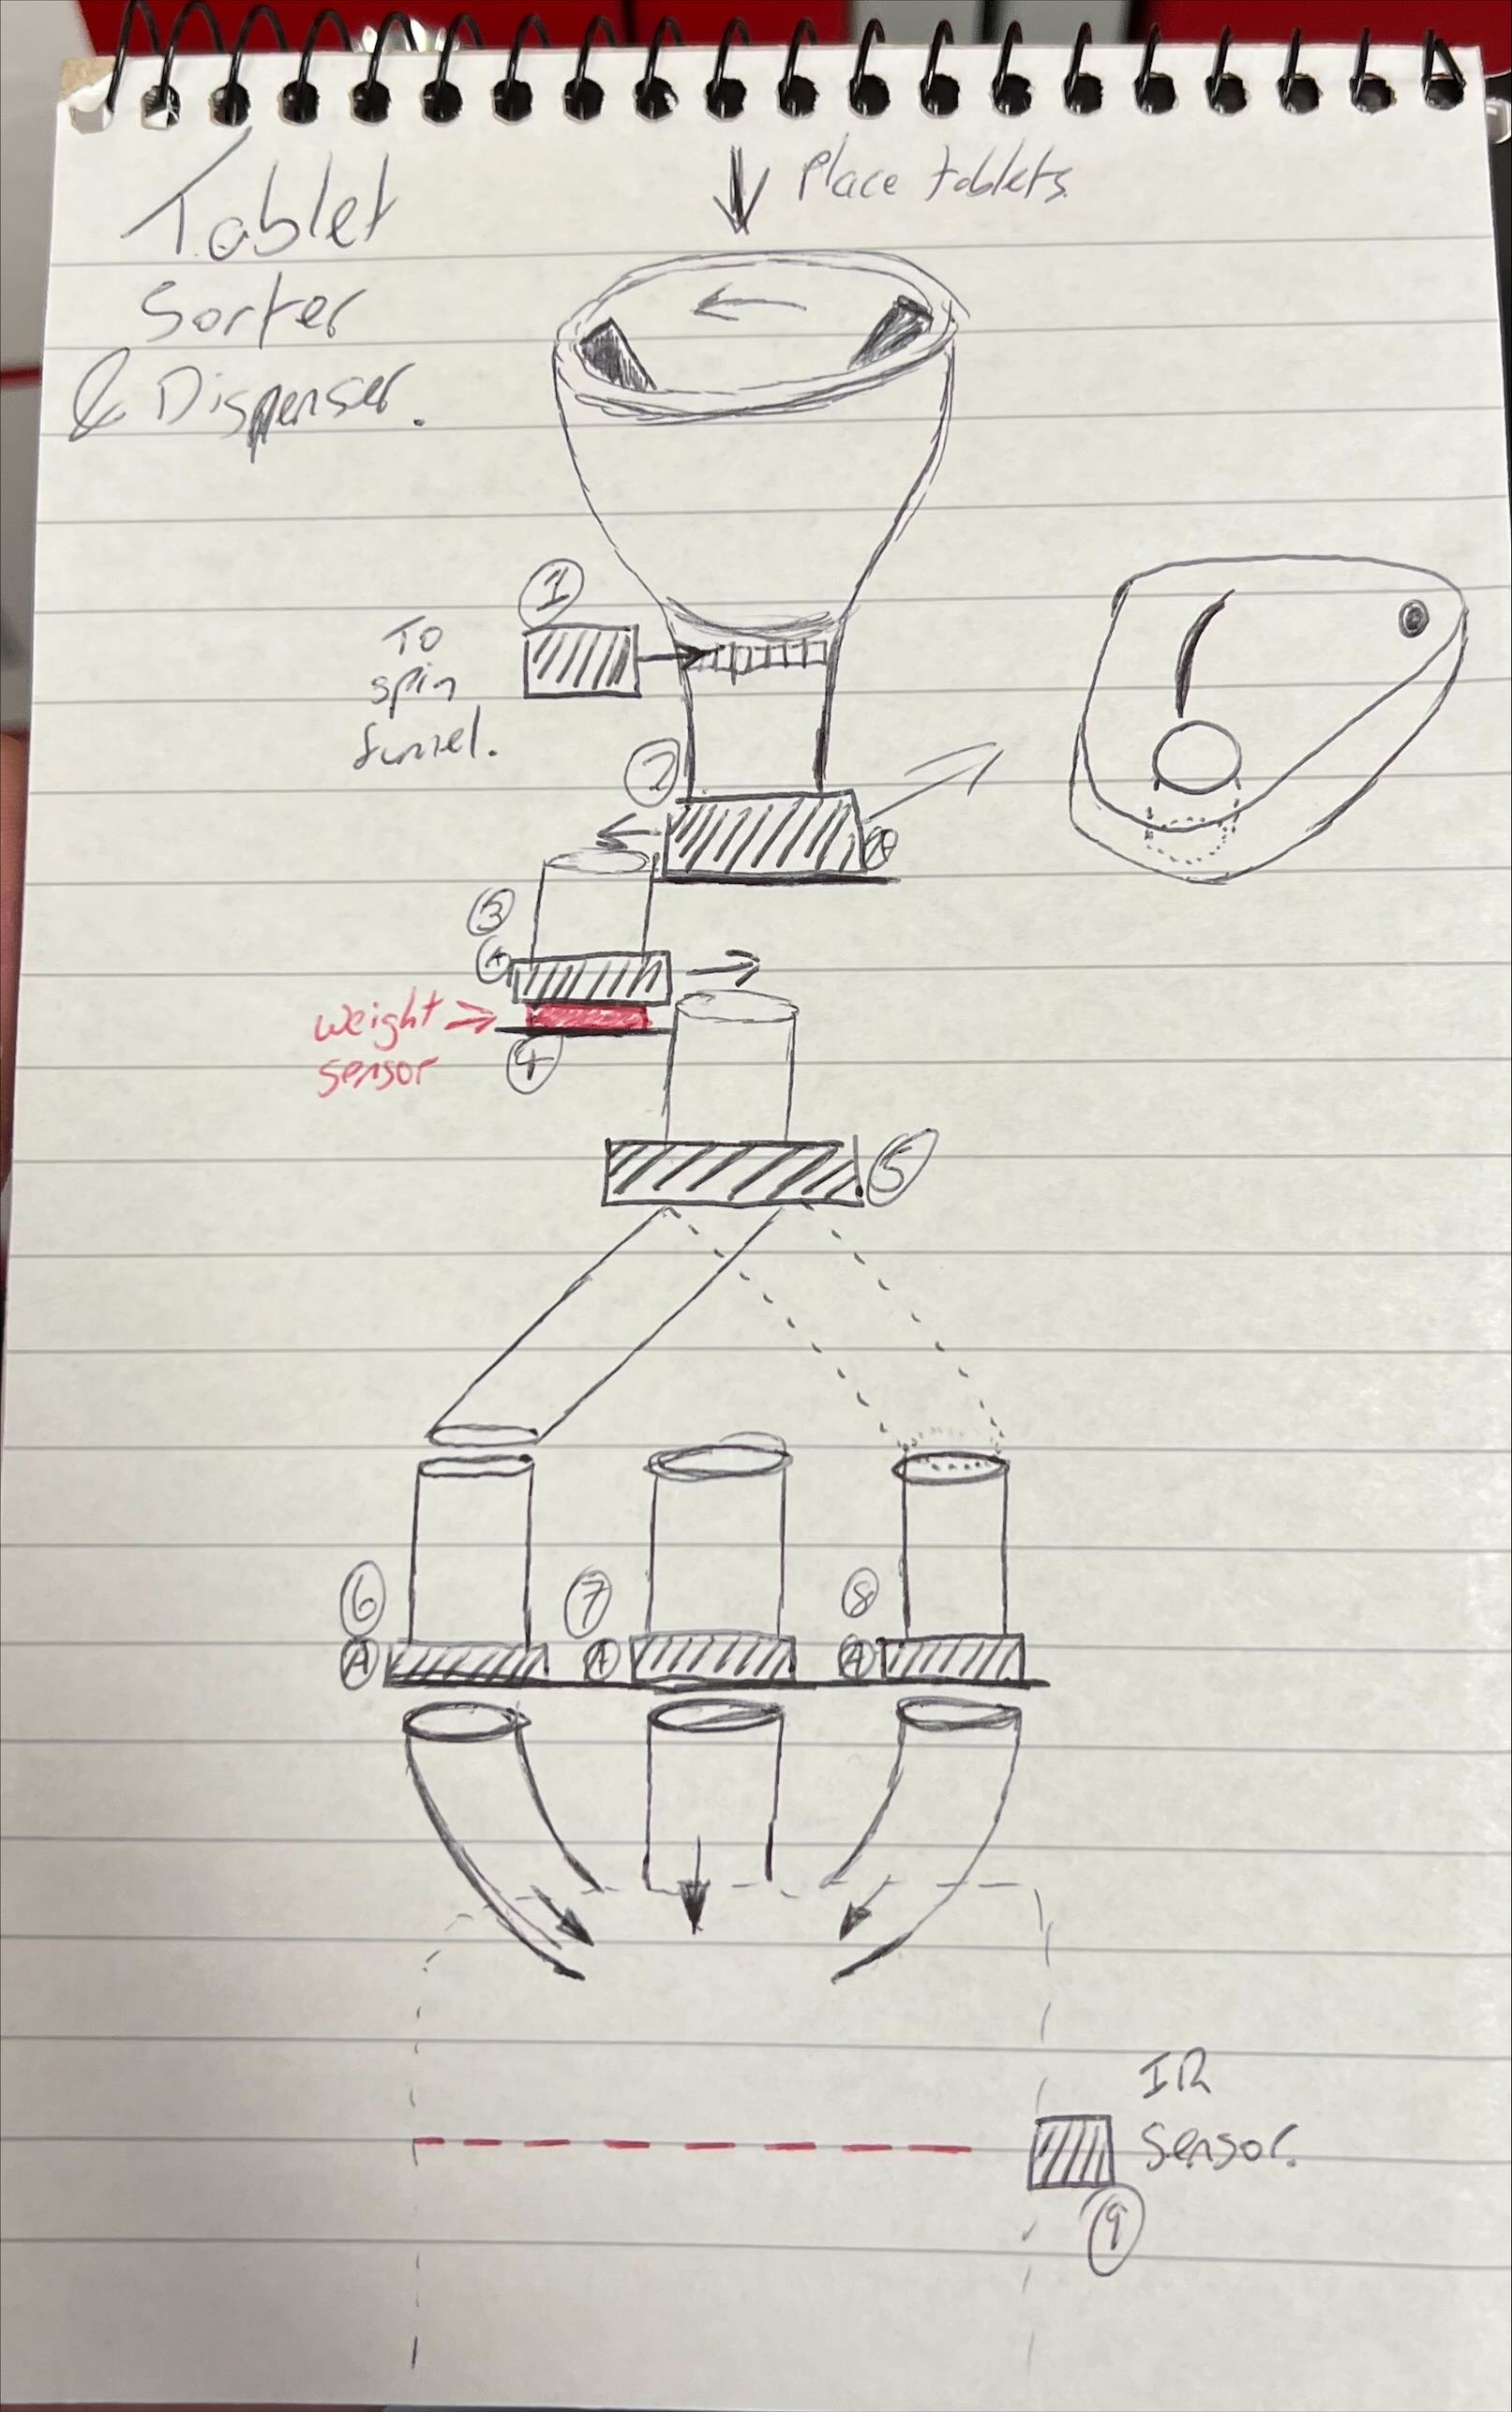 Tablet
Sorter
& Dispenser.
Place tablets
1
To
spin
funnel.
2
A
3
A
weight
sensor
4
5
6
A
7
A
8
A
IR
Sensor.
9